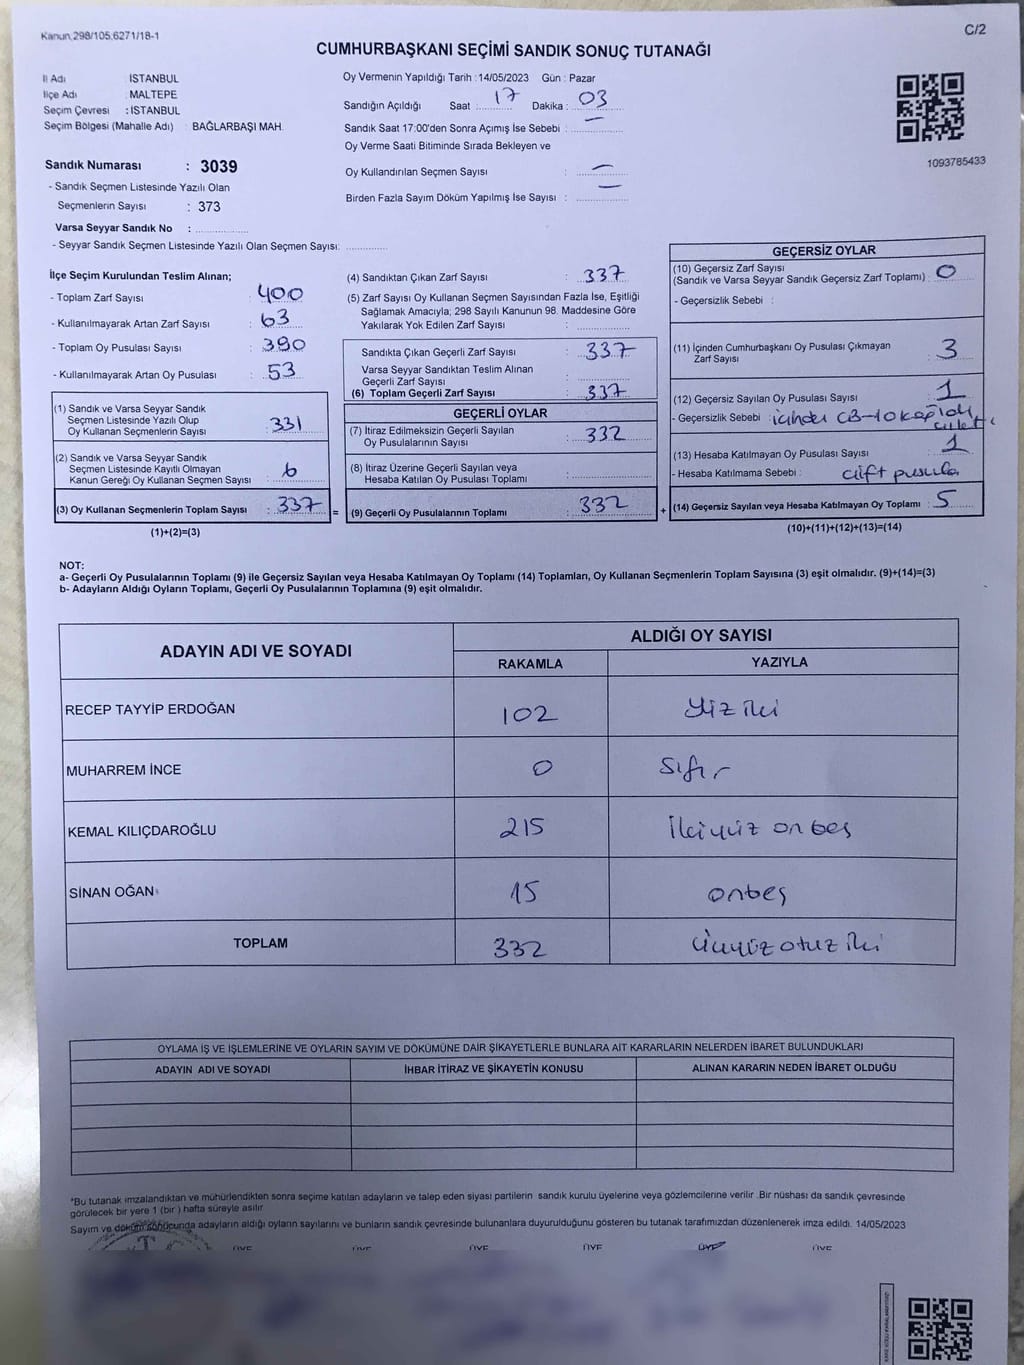 Kanun 298/105,6271/18-1
C/2
CUMHURBAŞKANI SEÇİMİ SANDIK SONUÇ TUTANAĞI
İl Adı İSTANBUL
İlçe Adı MALTEPE
Seçim Çevresi : İSTANBUL
Seçim Bölgesi (Mahalle Adı) : BAĞLARBAŞI MAH.
Sandık Numarası : 3039
- Sandık Seçmen Listesinde Yazılı Olan
Seçmenlerin Sayısı : 373
Varsa Seyyar Sandık No :
- Seyyar Sandık Seçmen Listesinde Yazılı Olan Seçmen Sayısı:
Oy Vermenin Yapıldığı Tarih : 14/05/2023 Gün : Pazar
Sandığın Açıldığı Saat : 17 Dakika : 03
Sandık Saat 17:00'den Sonra Açımış İse Sebebi : —
Oy Verme Saati Bitiminde Sırada Bekleyen ve
Oy Kullandırılan Seçmen Sayısı : —
Birden Fazla Sayım Döküm Yapılmış İse Sayısı : —
1093785433
İlçe Seçim Kurulundan Teslim Alınan;
- Toplam Zarf Sayısı : 400
- Kullanılmayarak Artan Zarf Sayısı : 63
- Toplam Oy Pusulası Sayısı : 390
- Kullanılmayarak Artan Oy Pusulası : 53
(1) Sandık ve Varsa Seyyar Sandık
Seçmen Listesinde Yazılı Olup
Oy Kullanan Seçmenlerin Sayısı : 331
(2) Sandık ve Varsa Seyyar Sandık
Seçmen Listesinde Kayıtlı Olmayan
Kanun Gereği Oy Kullanan Seçmen Sayısı : 6
(3) Oy Kullanan Seçmenlerin Toplam Sayısı : 337 =
(1)+(2)=(3)
(4) Sandıktan Çıkan Zarf Sayısı : 337
(5) Zarf Sayısı Oy Kullanan Seçmen Sayısından Fazla İse, Eşitliği
Sağlamak Amacıyla; 298 Sayılı Kanunun 98. Maddesine Göre
Yakılarak Yok Edilen Zarf Sayısı :
Sandıkta Çıkan Geçerli Zarf Sayısı : 337
Varsa Seyyar Sandıktan Teslim Alınan
Geçerli Zarf Sayısı :
(6) Toplam Geçerli Zarf Sayısı : 337
GEÇERLİ OYLAR
(7) İtiraz Edilmeksizin Geçerli Sayılan
Oy Pusulalarının Sayısı : 332
(8) İtiraz Üzerine Geçerli Sayılan veya
Hesaba Katılan Oy Pusulası Toplamı :
(9) Geçerli Oy Pusulalarının Toplamı : 332 +
GEÇERSİZ OYLAR
(10) Geçersiz Zarf Sayısı
(Sandık ve Varsa Seyyar Sandık Geçersiz Zarf Toplamı) : 0
- Geçersizlik Sebebi :
(11) İçinden Cumhurbaşkanı Oy Pusulası Çıkmayan
Zarf Sayısı : 3
(12) Geçersiz Sayılan Oy Pusulası Sayısı : 1
- Geçersizlik Sebebi : içinden CB-10
(13) Hesaba Katılmayan Oy Pusulası Sayısı : 1
- Hesaba Katılmama Sebebi : çift pusula
(14) Geçersiz Sayılan veya Hesaba Katılmayan Oy Toplamı : 5
(10)+(11)+(12)+(13)=(14)
NOT:
a- Geçerli Oy Pusulalarının Toplamı (9) ile Geçersiz Sayılan veya Hesaba Katılmayan Oy Toplamı (14) Toplamları, Oy Kullanan Seçmenlerin Toplam Sayısına (3) eşit olmalıdır. (9)+(14)=(3)
b- Adayların Aldığı Oyların Toplamı, Geçerli Oy Pusulalarının Toplamına (9) eşit olmalıdır.
ADAYIN ADI VE SOYADI
ALDIĞI OY SAYISI
RAKAMLA YAZIYLA
RECEP TAYYİP ERDOĞAN 102 yüz iki
MUHARREM İNCE 0 sıfır
KEMAL KILIÇDAROĞLU 215 ikiyüz onbeş
SİNAN OĞAN 15 onbeş
TOPLAM 332 üçyüz otuz iki
OYLAMA İŞ VE İŞLEMLERİNE VE OYLARIN SAYIM VE DÖKÜMÜNE DAİR ŞİKAYETLERLE BUNLARA AİT KARARLARIN NELERDEN İBARET BULUNDUKLARI
ADAYIN ADI VE SOYADI İHBAR İTİRAZ VE ŞİKAYETİN KONUSU ALINAN KARARIN NEDEN İBARET OLDUĞU
*Bu tutanak imzalandıktan ve mühürlendikten sonra seçime katılan adayların ve talep eden siyasi partilerin sandık kurulu üyelerine veya gözlemcilerine verilir .Bir nüshası da sandık çevresinde
görülecek bir yere 1 (bir ) hafta süreyle asılır
Sayım ve döküm sonucunda adayların aldığı oyların sayılarını ve bunların sandık çevresinde bulunanlara duyurulduğunu gösteren bu tutanak tarafımızdan düzenlenerek imza edildi. 14/05/2023
ÜYE ÜYE ÜYE ÜYE ÜYE ÜYE